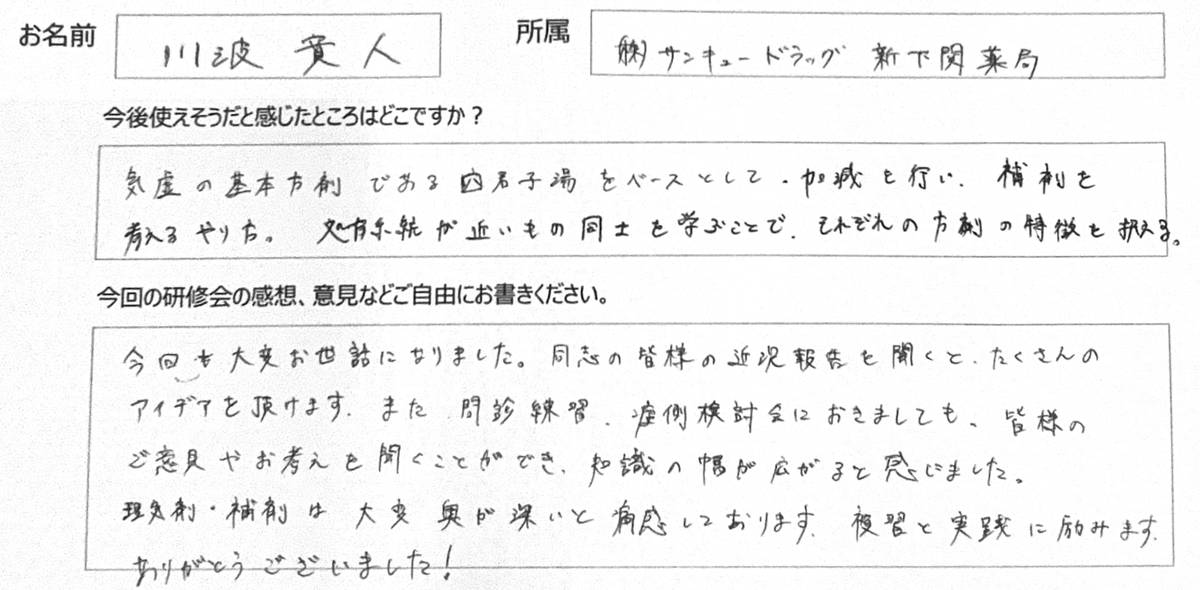 お名前 川波 貴人 所属 ㈱サンキュードラッグ 新下関薬局
今後使えそうだと感じたところはどこですか？
気虚の基本方剤である四君子湯をベースとして、加減を行い、補剤を
考えるやり方。処方系統が近いもの同士を学ぶことで、それぞれの方剤の特徴を捉える。
今回の研修会の感想、意見などご自由にお書きください。
今回も大変お世話になりました。同志の皆様の近況報告を聞くと、たくさんの
アイデアを頂けます。また、問診練習、症例検討会におきましても、皆様の
ご意見やお考えを聞くことができ、知識の幅が広がると感じました。
理気剤・補剤は大変奥が深いと痛感しております。複習と実践に励みます。
ありがとうございました！